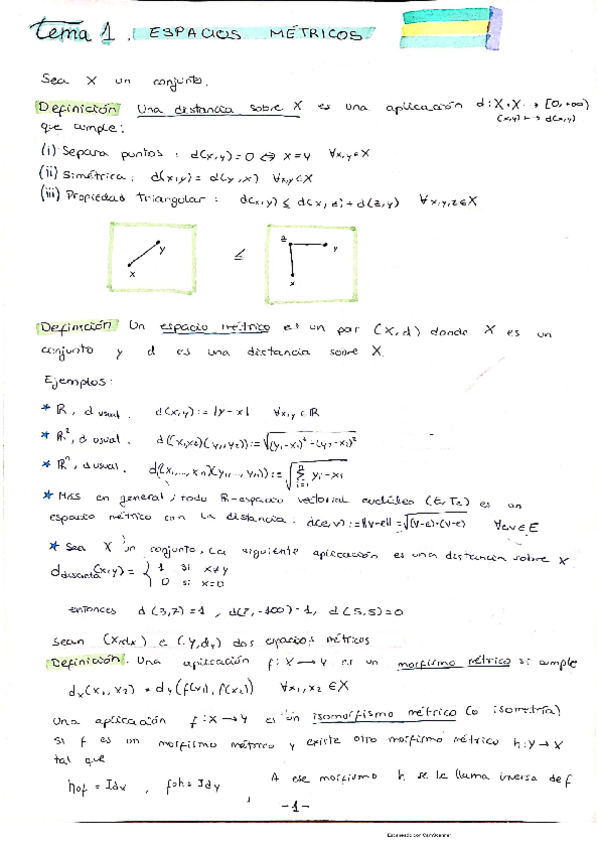 Tema 1. ESPACIOS MÉTRICOS
Sea X un conjunto.
Definición Una distancia sobre X es una aplicación d: X×X → [0,+∞)
(x,y) ↦ d(x,y)
que cumple:
(i) Separa puntos: d(x,y)=0 ⇔ x=y ∀x,y∈X
(ii) Simétrica: d(x,y) = d(y,x) ∀x,y∈X
(iii) Propiedad triangular: d(x,y) ≤ d(x,z)+d(z,y) ∀x,y,z∈X
x y ≤ z y x
Definición Un espacio métrico es un par (X,d) donde X es un
conjunto y d es una distancia sobre X.
Ejemplos:
* R, d usual. d(x,y) := |y-x| ∀x,y∈R
* R², d usual. d((x₁,x₂)(y₁,y₂)) := √(y₁-x₁)²-(y₂-x₂)²
* Rⁿ, d usual. d((x₁,...,xₙ)(y₁,...,yₙ)) := √∑ⁿᵢ₌₁ yᵢ-xᵢ
* Más en general, todo R-espacio vectorial euclídeo (E,T₂) es un
espacio métrico con la distancia. d(e,v) := ||v-e|| = √(v-e)·(v-e) ∀e,v∈E
* Sea X un conjunto. La siguiente aplicación es una distancia sobre X
d discreta (x,y) = { 1 si x≠y
0 si x=0
entonces d(3,7)=1, d(7,-100)=1, d(5,5)=0
Sean (X,dx) e (Y,dy) dos espacios métricos
Definición. Una aplicación f: X→Y es un morfismo métrico si cumple
dx(x₁,x₂) = dy(f(x₁),f(x₂)) ∀x₁,x₂∈X
Una aplicación f: X→Y es un isomorfismo métrico (o isometría)
si f es un morfismo métrico y existe otro morfismo métrico h: Y→X
tal que
h∘f = Idx, f∘h = Idy, A ese morfismo h se le llama inversa de f
-1-
Escaneado con CamScanner